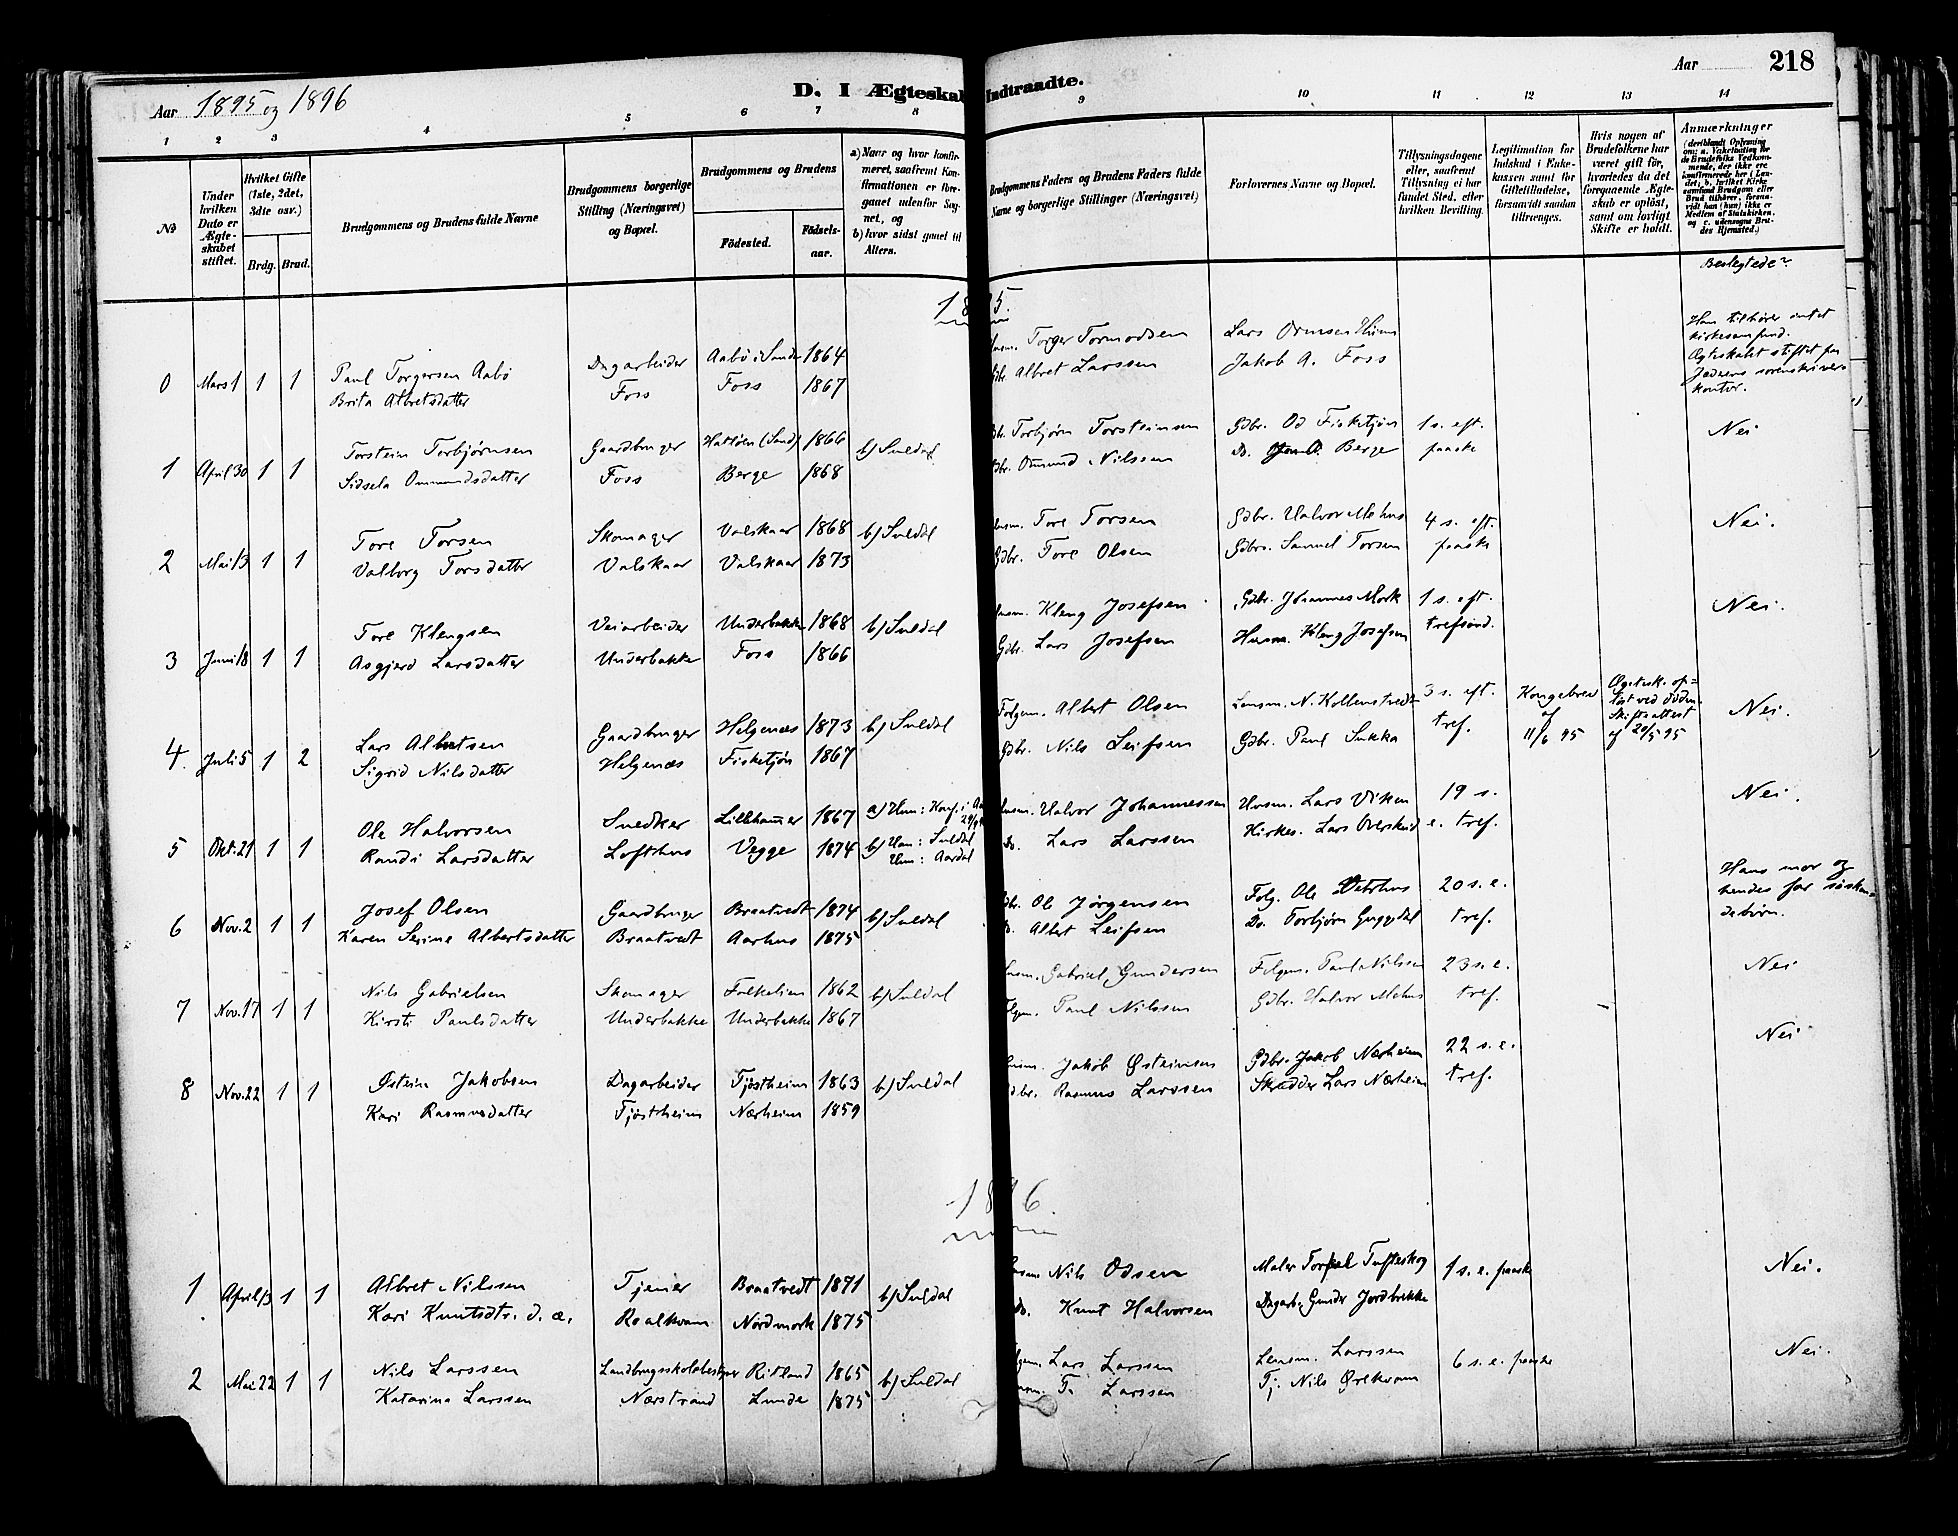 Aar 1895 og 1896
D. I Ægteskab Indtraadte.
Aar 218
1 2 3 4 5 6 7 8 9 10 11 12 13 14
No
Under hvilken Dato er Ægteskabet stiftet.
Hvilket Gifte (1ste, 2det, 3dte osv.)
Brdg. Brud.
Brudgommens og Brudens fulde Navne
Brudgommens borgerlige Stilling (Næringsvei) og Bopæl.
Brudgommens og Brudens
Födested.
Födsels-aar.
a) Naar og hvor konfirmeret, saafremt Konfirmationen er foregaaet udenfor Sognet, og
b) hvor sidst gaaet til Alters.
Brudgommens Faders og Brudens Faders fulde Navne og borgerlige Stillinger (Næringsvei)
Forlovernes Navne og Bopæl.
Tillysningsdagene eller, saafremt Tillysning ei har fundet Sted, efter hvilken Bevilling.
Legitimation for Indskud i Enkekassen samt for Giftetilladelse, forsaavidt saadan tiltrænges.
Hvis nogen af Brudefolkene har været gift för, hvorledes da det foregaaende Ægteskab er oplöst, samt om lovligt Skifte er holdt.
Anmærkninger
(deriblandt Oplysning om: a. Vakcination for de Brudefolks Vedkommende, der ikke ere konfirmerede her i Landet, b. hvilket Kirkesamfund Brudgom eller Brud tilhörer, forsaavidt han (hun) ikke er Medlem af Statskirken, og c. udensogns Brudes Hjemsted.)
Beslegtede?
1895.
0 Mars 1 1 1 Paul Torgersen Aabø Dagarbeider Aabø i Sande 1864 Torger Tormodsen Lars Ormsen Hiim Han tilhører intet kirkesamfund. Ægteskabet stiftet paa Jædrens sorenskriverkontor.
Brita Albretsdatter Foss Foss 1867 Albret Larssen Jakob A. Foss
1 April 30 1 1 Torstein Torbjørnsen Gaardbruger (Sand) 1866 b) Suldal Torbjørn Torsteinsen Gdbr. Od Fisketjøn 1 s. eft. paaske Nei
Sidsela Ommundsdatter Foss Berge 1868 Omund Nilssen Do. Berge
2 Mai 13 1 1 Tore Torsen Skomager Valskaar 1868 b) Suldal Husm. Tore Torsen Gdbr. Halvor Mehus 4 s. eft. paaske Nei.
Valborg Torsdatter Valskaar Valskaar 1873 Gdbr. Tore Olsen Gdbrs. Samuel Torsen
3 Juni 18 1 1 Tore Klengsen Veiarbeider Underbakke 1868 b) Suldal Husm. Kleng Josefsen Gdbr. Johannes Mork 1 s. eft. trefsønd. Nei.
Asgjerd Larsdatter Underbakke Foss 1866 Gdbr. Lars Josefsen Husm. Kleng Josefsen
4. Juli 5 1 2 Lars Albretsen Gaardbruger Helgenæs 1873 b) Suldal Folgem. Albert Olsen Lensm. N. Kollenstvedt 3 s. eft. tref. Kongebrev af 11/6 95 Ægtesk. opløst ved døden. Skifteattest af 29/5 95 Nei.
Sigrid Nilsdatter Helgenæs Fisketjøn 1867 Gdbr. Nils Leifsen Gdbr. Paul Sukka
5 Okt. 21 1 1 Ole Halvorsen Snedker Lillehammer 1867 a) Hun: Konf. i Husm. Halvor Johannessen Husm. Lars Viken 19 s. e. tref. Nei.
Randi Larsdatter Lofthus Vegge 1874 b) Han: Suldal Hun: Aardal Do. Lars Larssen Kirkes. Lars Overskeid
6 Nov. 2 1 1 Josef Olsen Gaardbruger Braatvedt 1874 b) Suldal Gdbr. Ole Jørgensen Folg. Ole 20 s. e. tref. Hans mor og hendes far søskendebørn.
Karen Serine Albertsdatter Braatvedt Aarhus 1875 Do. Albert Leifsen Do. Torbjørn Guggedal
7 Nov. 17 1 1 Nils Gabrielsen Skomager Falkeliem 1862 b) Suldal Husm. Gabriel Gundersen Folgm. Paul Nilssen 23 s. e. tref. Nei
Kirsti Paulsdatter Underbakke Underbakke 1867 Folgm. Paul Nilssen Gdbr. Halvor Mehus
8 Nov. 22 1 1 Østein Jakobsen Dagarbeider Tjøstheim 1863 b) Suldal Husm. Jakob Østeinsen Gdbr. Jakob Nærheim 22 s. e. tref. Nei
Kari Rasmusdatter Tjøstheim Nærheim 1859 Gdbr. Rasmus Larssen Skrædder Lars Nærheim
1896.
1 April 13 1 1 Albret Nilssen Tjener Braatvedt 1871 b) Suldal Husm. Nils Odsen Maler Torkel Tufteskog 1 s. e. paaske Nei.
Kari Knutsdtr. d. æ. Roalkvam Nordmork 1875 Do. Knut Halvorsen Dagarb. Gunder Jordbrekke
2 Mai 22 1 1 Nils Larssen Landbrugsskolebestyrer Ritland 1865 b) Suldal Folgem. Lars Larssen Lensm. Larssen 6 s. e. paaske Nei.
Katarina Larssen Nærstrand Lunde 1875 Lensm. T. Larssen Tj. Nils Ørekvam